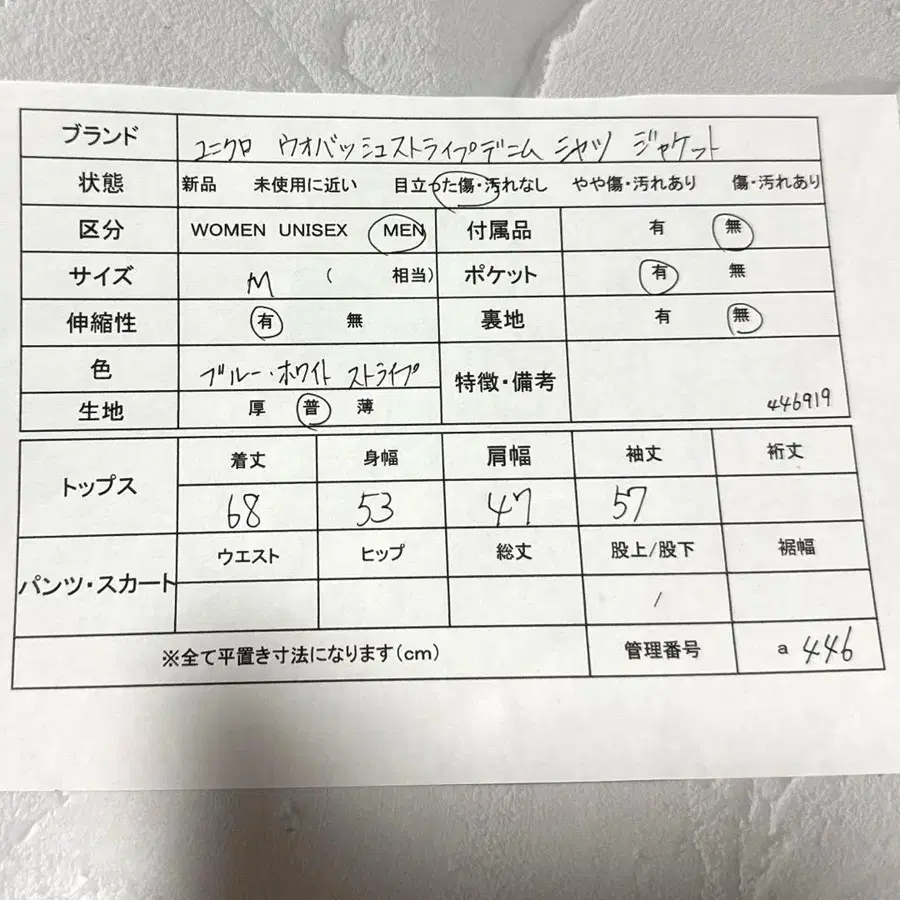 ブランド ユニクロ ウオバッシュストライプデニム シャツ ジャケット
状態 新品 未使用に近い 目立った傷・汚れなし やや傷・汚れあり 傷・汚れあり
区分 WOMEN UNISEX MEN 付属品 有 無
サイズ M ( 相当) ポケット 有 無
伸縮性 有 無 裏地 有 無
色 ブルー・ホワイト ストライプ 特徴・備考
生地 厚 普 薄 446919
トップス 着丈 身幅 肩幅 袖丈 裄丈
68 53 47 57
パンツ・スカート ウエスト ヒップ 総丈 股上/股下 裾幅
/
※全て平置き寸法になります(cm) 管理番号 a 446